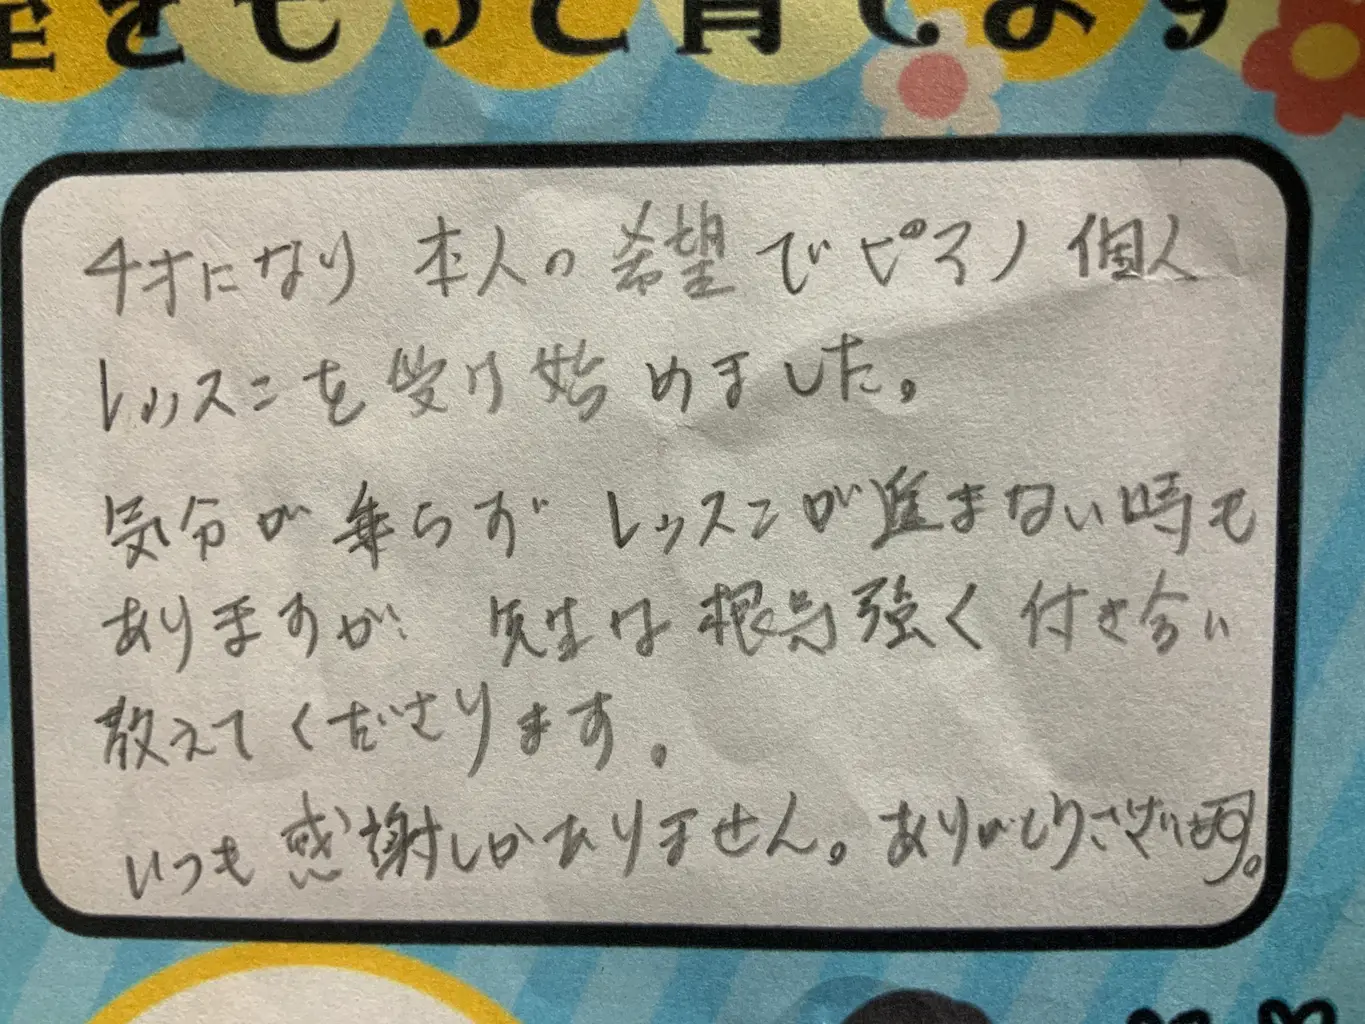 室をもっと育てます
4才になり 本人の希望でピアノ個人
レッスンを受け始めました。
気分が乗らず レッスンが進まない時も
ありますが 先生は根気強く付き合い
教えてくださります。
いつも感謝しかありません。ありがとうございます。